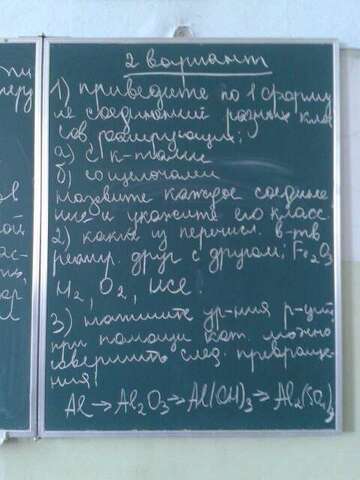 2 вариант
1) приведите по 1 форму
ле соединений разных клас
сов реагирующих:
а) с к-тами
б) со щелочами
назовите каждое соедине
ние и укажите его класс.
2) какие из перечисл. в-тв
реагир. друг с другом: Fe2O3
H2, O2, HCl
3) напишите ур-ния р-ций
при помощи кот. можно
совершить след. превраще
ния:
Al → Al2O3 → Al(OH)3 → Al2(SO4)3